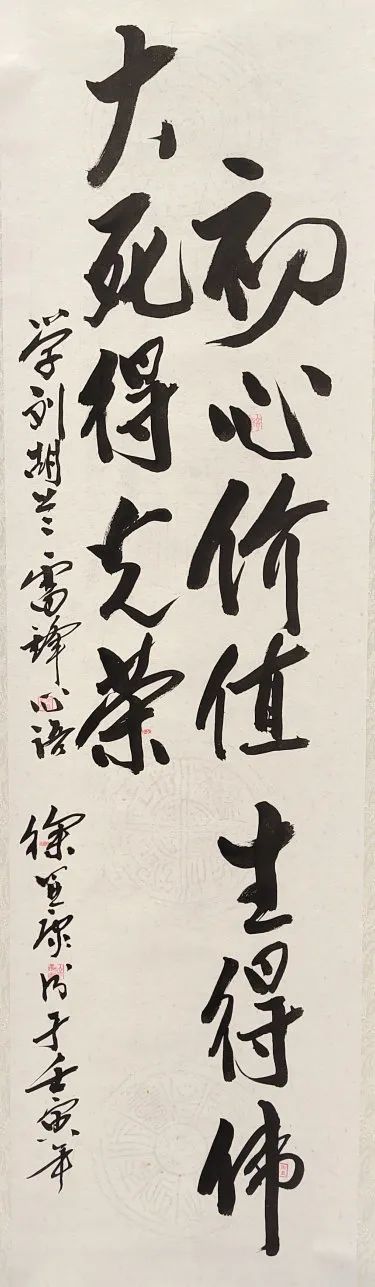 初心价值生得伟
大死得光荣
学刘胡兰雷锋心语
徐宜康书于壬寅年